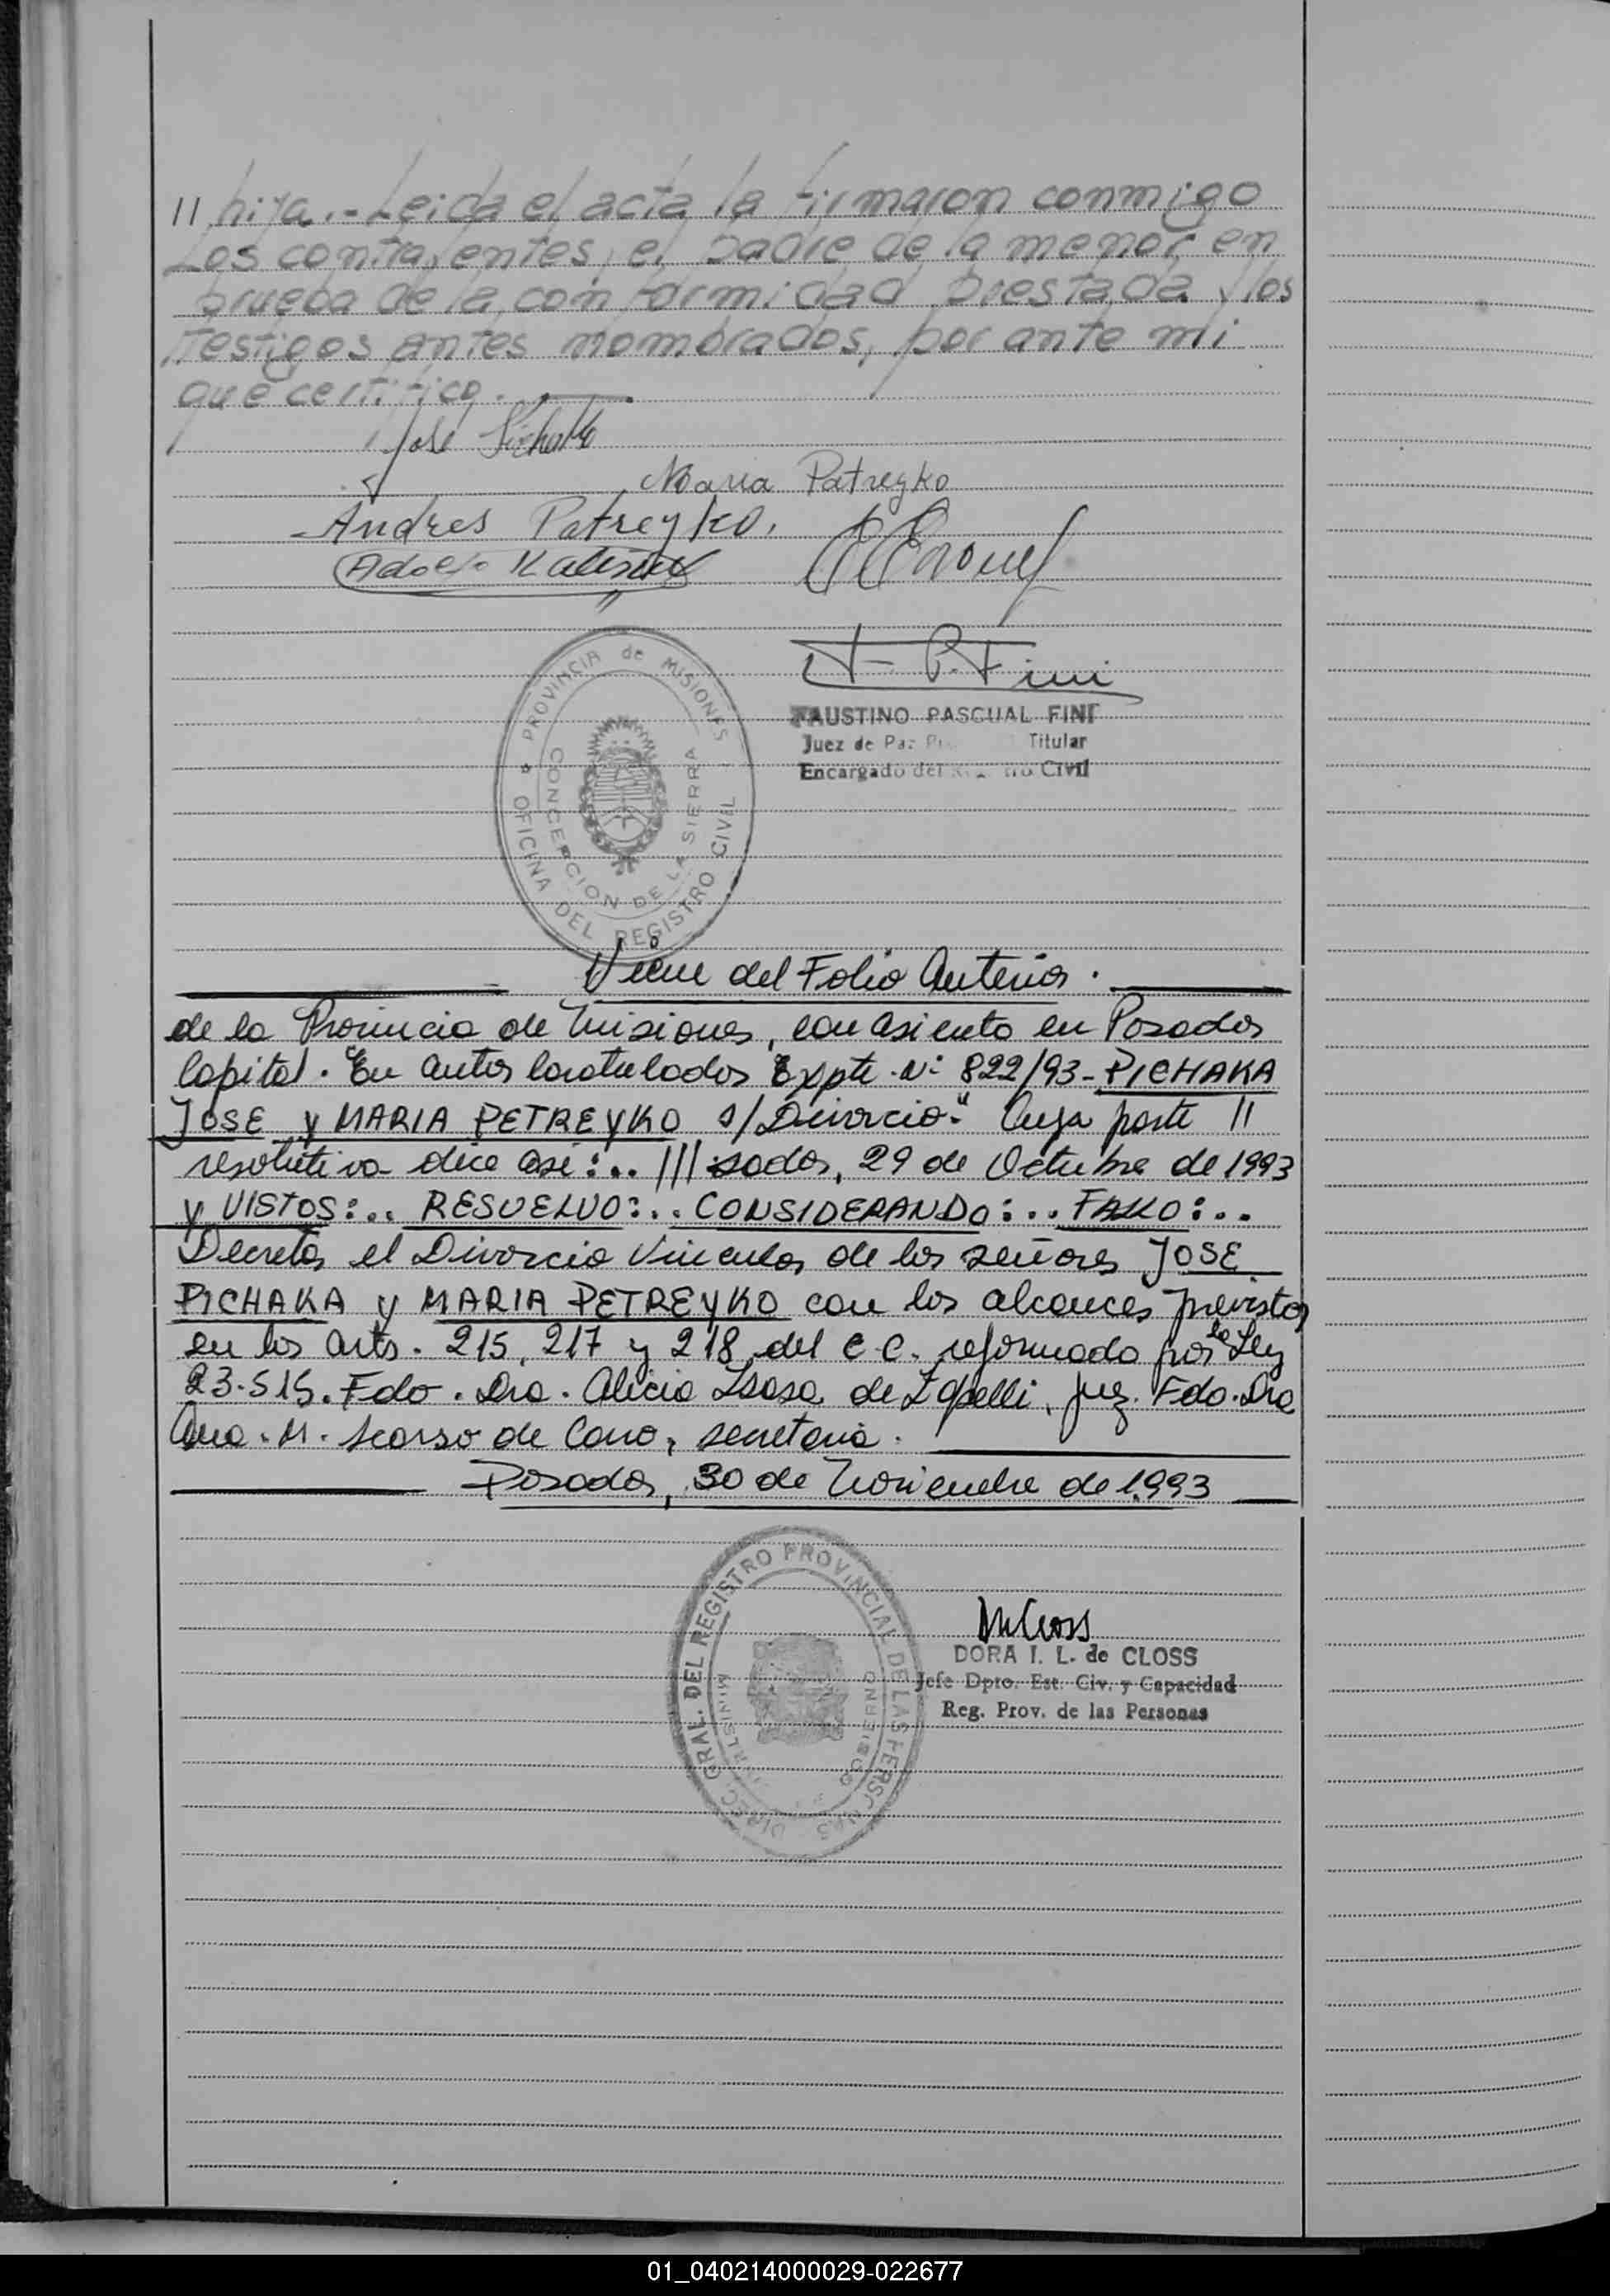 // hija.- Leida el acta la firmaron conmigo
Los contrayentes, el padre de la menor en
prueba de la conformidad prestada y los
testigos antes nombrados, por ante mi
que certifico.
José Pichaka
Maria Patreyko
Andres Patreyko.
Adolfo
F. P. Fini
FAUSTINO PASCUAL FINI
Juez de Paz Titular
Encargado del Civil
PROVINCIA de MISIONES
OFICINA DEL REGISTRO CIVIL
CONCEPCION DE LA SIERRA
Viene del Folio Anterior.
de la Provincia de Misiones, con asiento en Posadas
Capital. En autos caratulados "Expte. Nº 822/93-PICHAKA
JOSE y MARIA PETREYKO s/Divorcio." Cuya parte //
resolutiva dice asi:.. ///sadas, 29 de Octubre de 1993
y VISTOS:.. RESUELVO:.. CONSIDERANDO:.. FALLO:..
Decretar el Divorcio Vincular de los señores JOSE
PICHAKA y MARIA PETREYKO con los alcances previstos
en los arts. 215, 217 y 218 del C.C. reformado por la Ley
23.515. Fdo. Dra. Alicia de Juez. Fdo. Dra
Ana. M. Scorso de Cano, secretaria.
Posadas, 30 de Noviembre de 1993
DIREC. GRAL. DEL REGISTRO PROVINCIAL DE LAS PERSONAS
DORA I. L. de CLOSS
Jefe Dpto. Est. Civ. y Capacidad
Reg. Prov. de las Personas
01_040214000029-022677